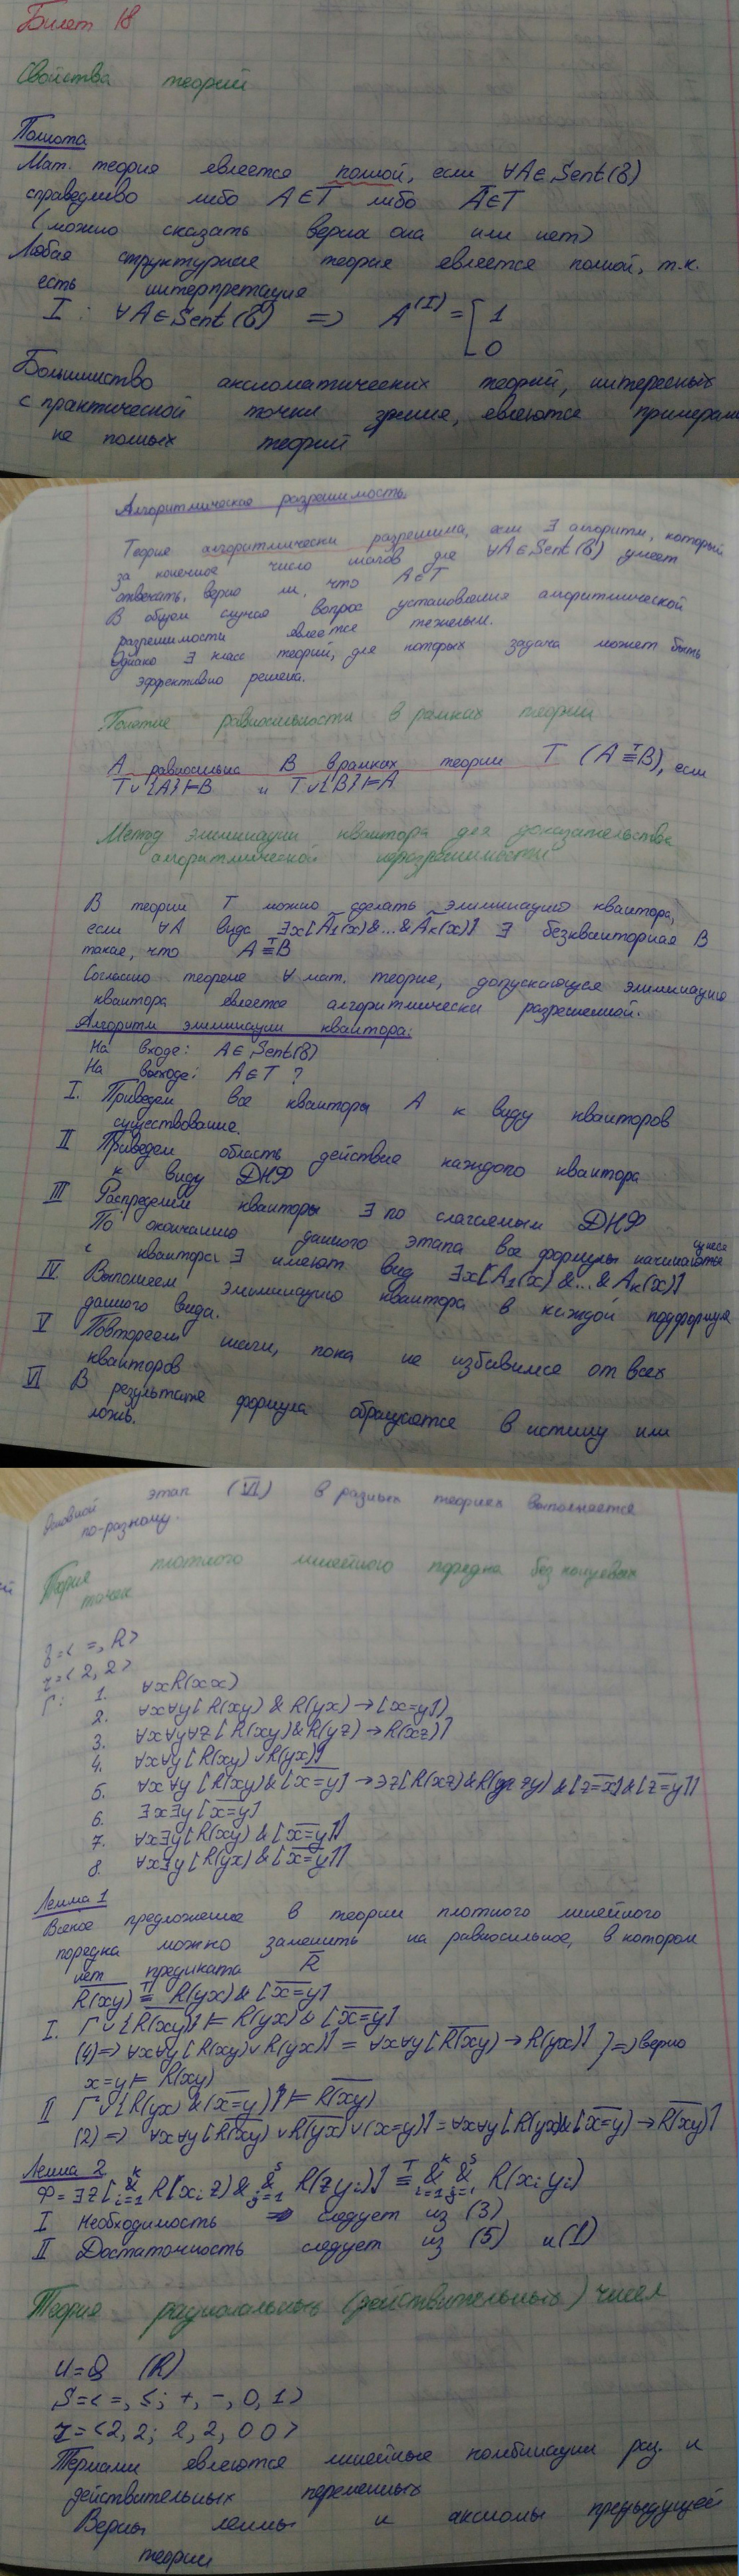 Билет 18
Свойства теорий
Полнота
Мат. теория является полной, если ∀A∈Sent(δ)
справедливо либо A∈T либо A̅∈T
(можно сказать верна она или нет)
Любая структурная теория является полной, т.к.
есть интерпретация
I: ∀A∈Sent(δ) => A^(I) = [ 1
0
Большинство аксиоматических теорий, интересных
с практической точки зрения, являются примерами
не полных теорий
Алгоритмическая разрешимость.
Теория алгоритмически разрешима, если ∃ алгоритм, который
за конечное число шагов для ∀A∈Sent(δ) умеет
отвечать, верно ли, что A∈T
В общем случае вопрос установления алгоритмической
разрешимости является тяжелым.
Однако ∃ класс теорий, для которых задача может быть
эффективно решена.
Понятие равносильности в рамках теории
A равносильна B в рамках теории T (A ≡ᵀ B), если
T∪{A}⊨B и T∪{B}⊨A
Метод элиминации квантора для доказательства
алгоритмической неразрешимости
В теории T можно сделать элиминацию квантора,
если ∀A вида ∃x[A̅₁(x)&...&A̅ₖ(x)] ∃ безкванторная B
такая, что A ≡ᵀ B
Согласно теореме ∀ мат. теория, допускающая элиминацию
квантора является алгоритмически разрешенной.
Алгоритм элиминации квантора:
На входе: A∈Sent(δ)
На выходе: A∈T ?
I. Приведем все кванторы A к виду кванторов
существования.
II Приведем область действия каждого квантора
к виду ДНФ
III Распределим кванторы ∃ по слагаемым ДНФ
По окончанию данного этапа все формулы начинающиеся
с квантора ∃ имеют вид ∃x[A₁(x)&...&Aₖ(x)]
IV. Выполняем элиминацию квантора в каждой подформуле
данного вида.
V Повторяем шаги, пока не избавимся от всех
кванторов
VI В результате формула обращается в истину или
ложь.
Основной этап (VI) в разных теориях выполняется
по-разному.
Теория плотного линейного порядка без концевых
точек
δ=< =, R>
τ=<2, 2>
Г: 1. ∀xR(xx)
2. ∀x∀y[R(xy)&R(yx)→[x=y]]
3. ∀x∀y∀z[R(xy)&R(yz)→R(xz)]
4. ∀x∀y[R(xy)∨R(yx)]
5. ∀x∀y[R(xy)&[x̅=̅y̅]→∃z[R(xz)&R(zy)&[z̅=̅x̅]&[z̅=̅y̅]]
6. ∃x∃y[x̅=̅y̅]
7. ∀x∃y[R(xy)&[x̅=̅y̅]]
8. ∀x∃y[R(yx)&[x̅=̅y̅]]
Лемма 1
Всякое предложение в теории плотного линейного
порядка можно заменить на равносильное, в котором
нет предиката R̅
R̅(xy) ≡ᵀ R(yx)&[x̅=̅y̅]
I. Г∪{R̅(xy)}⊨R(yx)&[x̅=̅y̅]
(4)=>∀x∀y[R(xy)∨R(yx)] = ∀x∀y[R̅(xy)→R(yx)] }=>верно
x=y⊨R(xy)
II Г∪{R(yx)&(x̅=̅y̅)}⊨R̅(xy)
(2)=> ∀x∀y[R̅(xy)∨R̅(yx)∨(x=y)]=∀x∀y[R(yx)&[x̅=̅y̅)→R̅(xy)]
Лемма 2
Φ=∃z[&ᵢ₌₁ᵏ R(xᵢz)&&ⱼ₌₁ˢ R(zyⱼ)] ≡ᵀ &ᵢ₌₁ᵏ &ⱼ₌₁ˢ R(xᵢyⱼ)
I Необходимость следует из (3)
II Достаточность следует из (5) и (1)
Теория рациональных (действительных) чисел
U=Q (R)
S=<=, ≤; +, -, 0, 1>
τ=<2, 2; 2, 2, 0 0>
Термами являются линейные комбинации рац. и
действительных переменных
Верны леммы и аксиомы предыдущей
теории